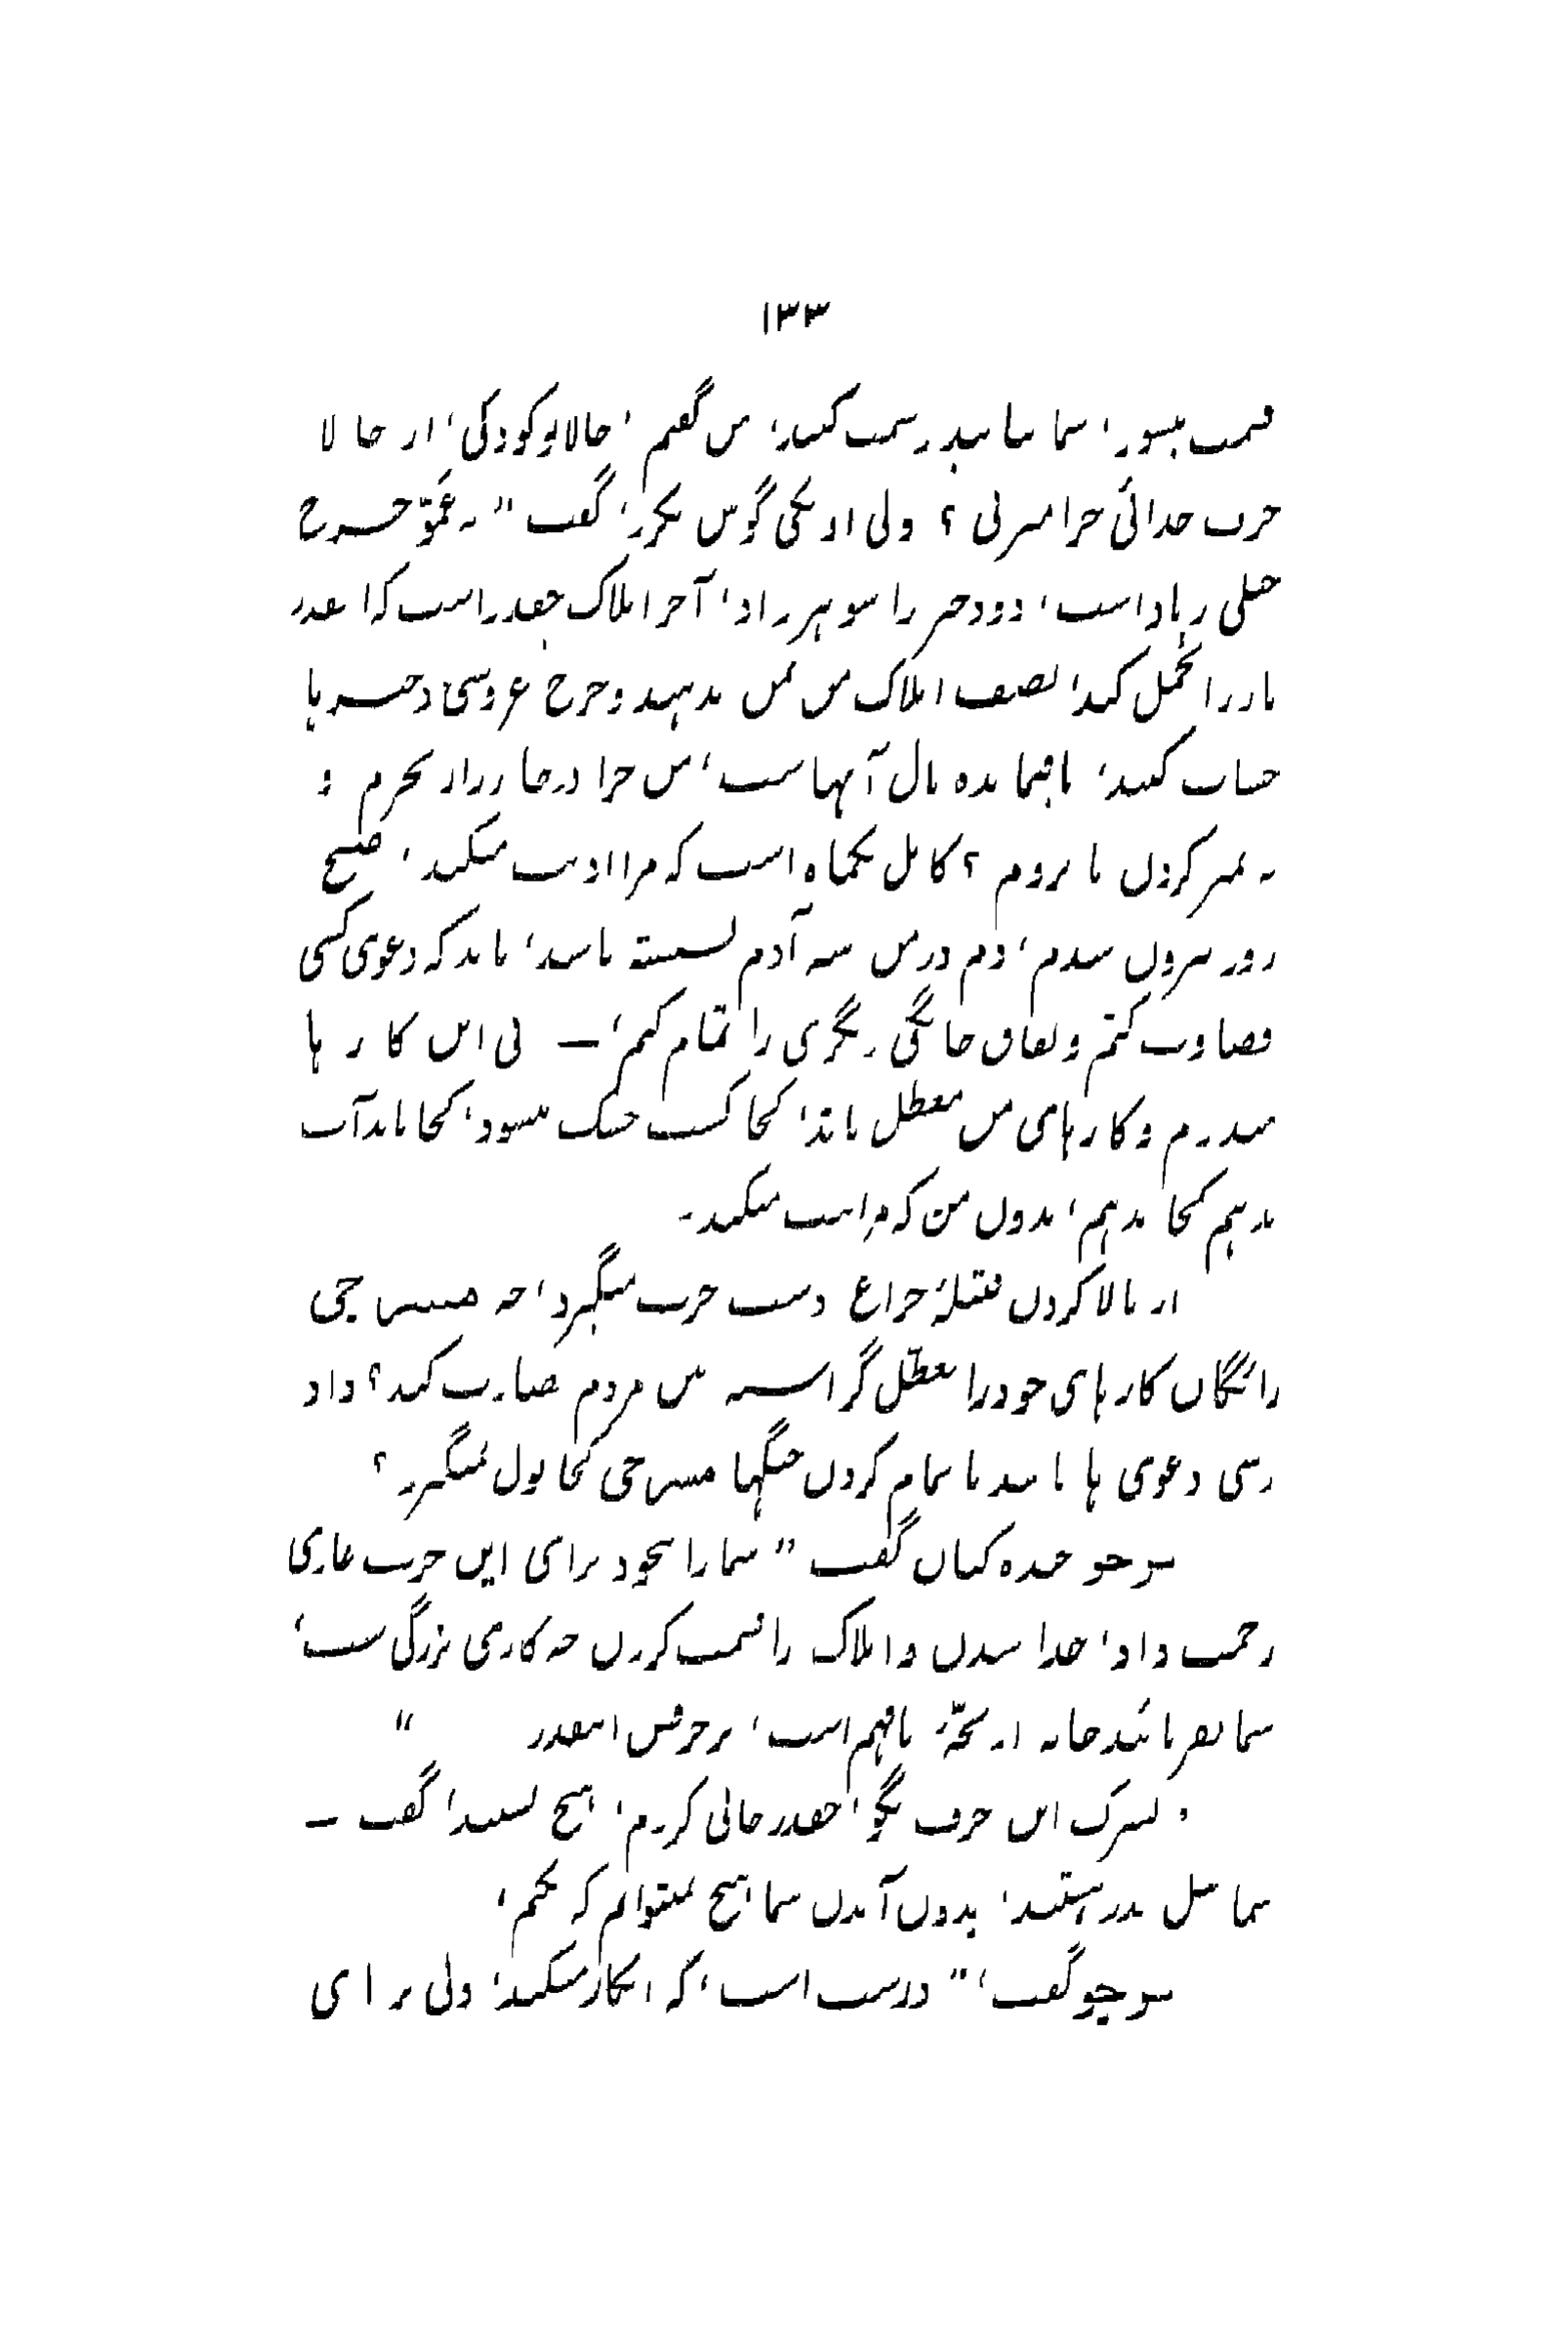 ۱۳۳
قسمت میشود، شما بیایید درست کنید، من گفتم، حالا تو کودکی، از حالا
حرف جدائی چرا میزنی؟ ولی او یکی گوش نکرد، گفت "نه عمّو خرج
خیلی زیاد است، دو دختر را شوهر داد، آخر املاک چقدر است که اینقدر
بار را تحمل کند، نصف املاک من بمن بدهید و خرج عروسئ دخترها
حساب کنید، باقیمانده مال آنهاست، من چرا در چار روزار بخرم و
نه کردن ما بروم؟ کامل یکماه است که مرا اذیت میکند، صبح
زود بیرون شدم، دم درمن سه آدم نشسته باشد، باید که دعوی کسی
قضاوت کنم و نفاق خانگی دیگری را تمام کنم، – پی این کار ها
میدوم و کارهای من معطل ماند، کجا کشت خشک میشود، کجا باید آب
بدهم کجا ندهم، بدون من که مواست میکند۔
از بالا کردن فتیلۂ چراغ دست چرب میگیرد، چه میسر جی
رائگان کارهای خود را معطّل گزاشته بین مردم قضاوت کند؟ داد
رسی دعوی ها باشد یا تمام کردن جنگها میسر جی کجا پول نمیگیرد؟
خنده کنان گفت "شما را بیخود برای این حرف عاری
زحمت داد، جدا شدن و املاک را قسمت کردن چه کاری بزرگی ست،
شما بفرمائید خانه از بچّۂ نافهم است، بر حرفش اینقدر "
پسرک این حرف بگو، چقدر حالی کردم، هیچ نشنید، گفت –
شما مثل پدر هستید، بدون آمدن شما هیچ نمیتوانم که بکنم،
گفت، "درست است، که انکار میکنید، ولی برای